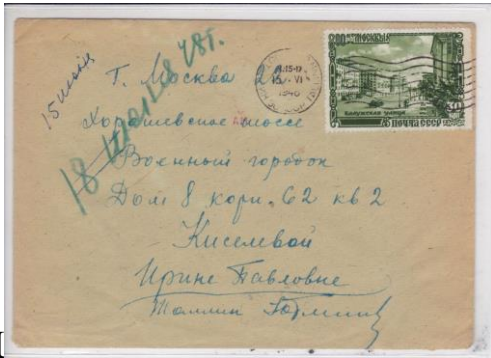 15 июня
18 июня 48 г.
Г. Москва 2
Хорошевское шоссе
Военный городок
Дом 8 корп. 62 кв 2
Киселевой
Ирине Павловне
Таллин
15 VI
1948
800 МОСКВА
Калужская улица
ПОЧТА СССР
30